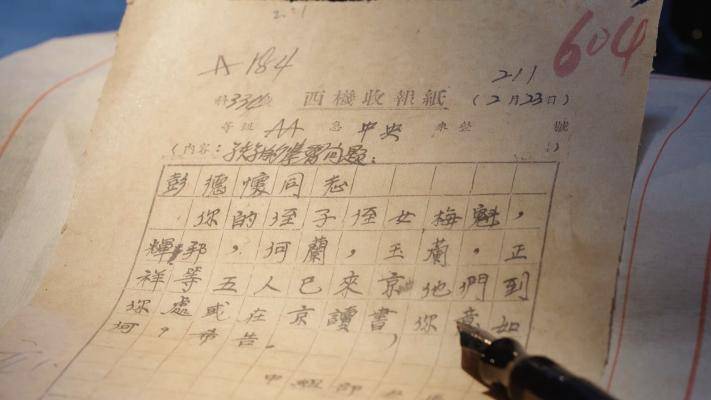 211
A 184
604
211
332
西機收報紙
(2月23日)
等級 AA 急 中央 來 號
(内容:孩子的學習问题。)
彭德懷同志
你的侄子侄女梅魁,
輝邦,河蘭,玉蘭,正
祥等五人已來京他們到
你處或在京讀書,你意如
何,希告。
中組部